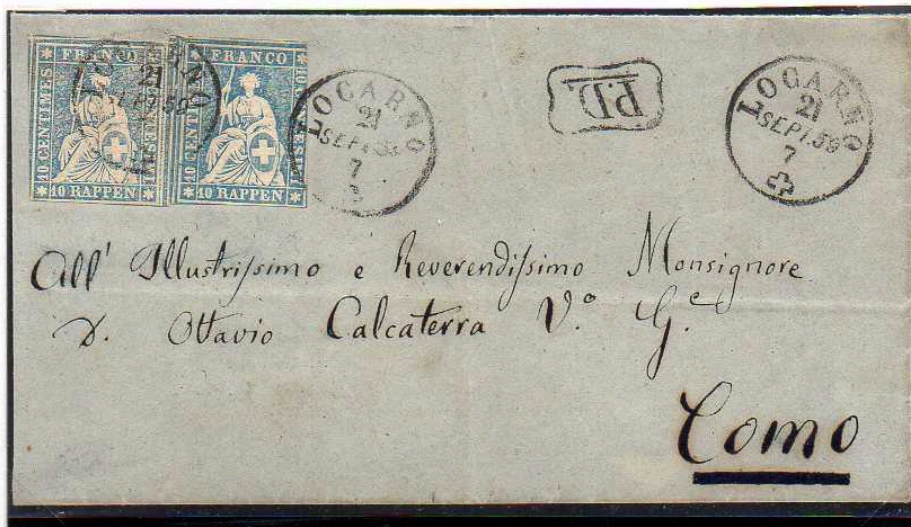 FRANCO FRANCO
10 CENTIMES 10 CENTIMES
10 RAPPEN 10 RAPPEN
LOCARNO
21
SEPT.59
7
P.D.
LOCARNO
21
SEPT.59
7
All' Illustrissimo e Reverendissimo Monsignore
D. Ottavio Calcaterra V.º G.e
Como